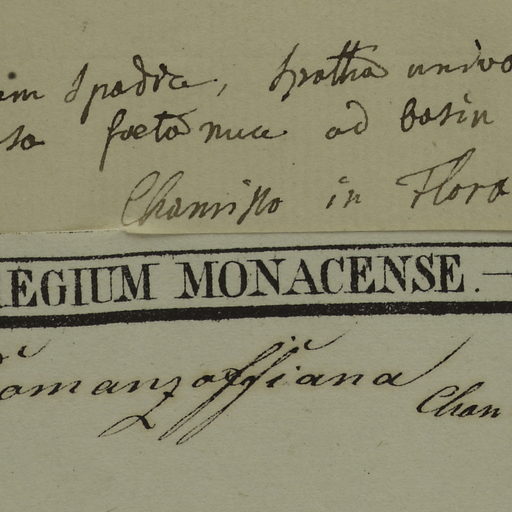 em spadice, spatha univa
sa foeta nuce ad basin
Chamisso in Flora
REGIUM MONACENSE. —
Romanzoffiana
Cham